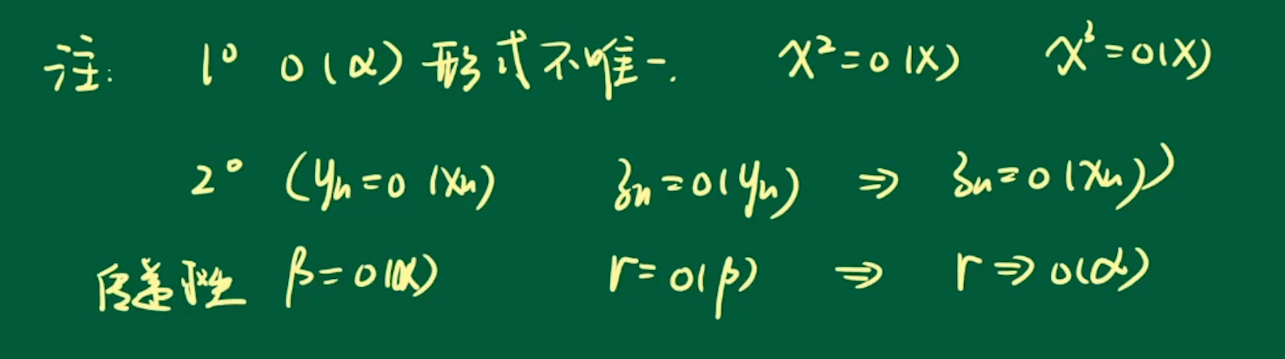 注: 1° o(α) 形式不唯一. x²=o(x) x³=o(x)
2° (yₙ=o(xₙ) zₙ=o(yₙ) ⇒ zₙ=o(xₙ))
传递性 β=o(α) r=o(β) ⇒ r⇒o(α)